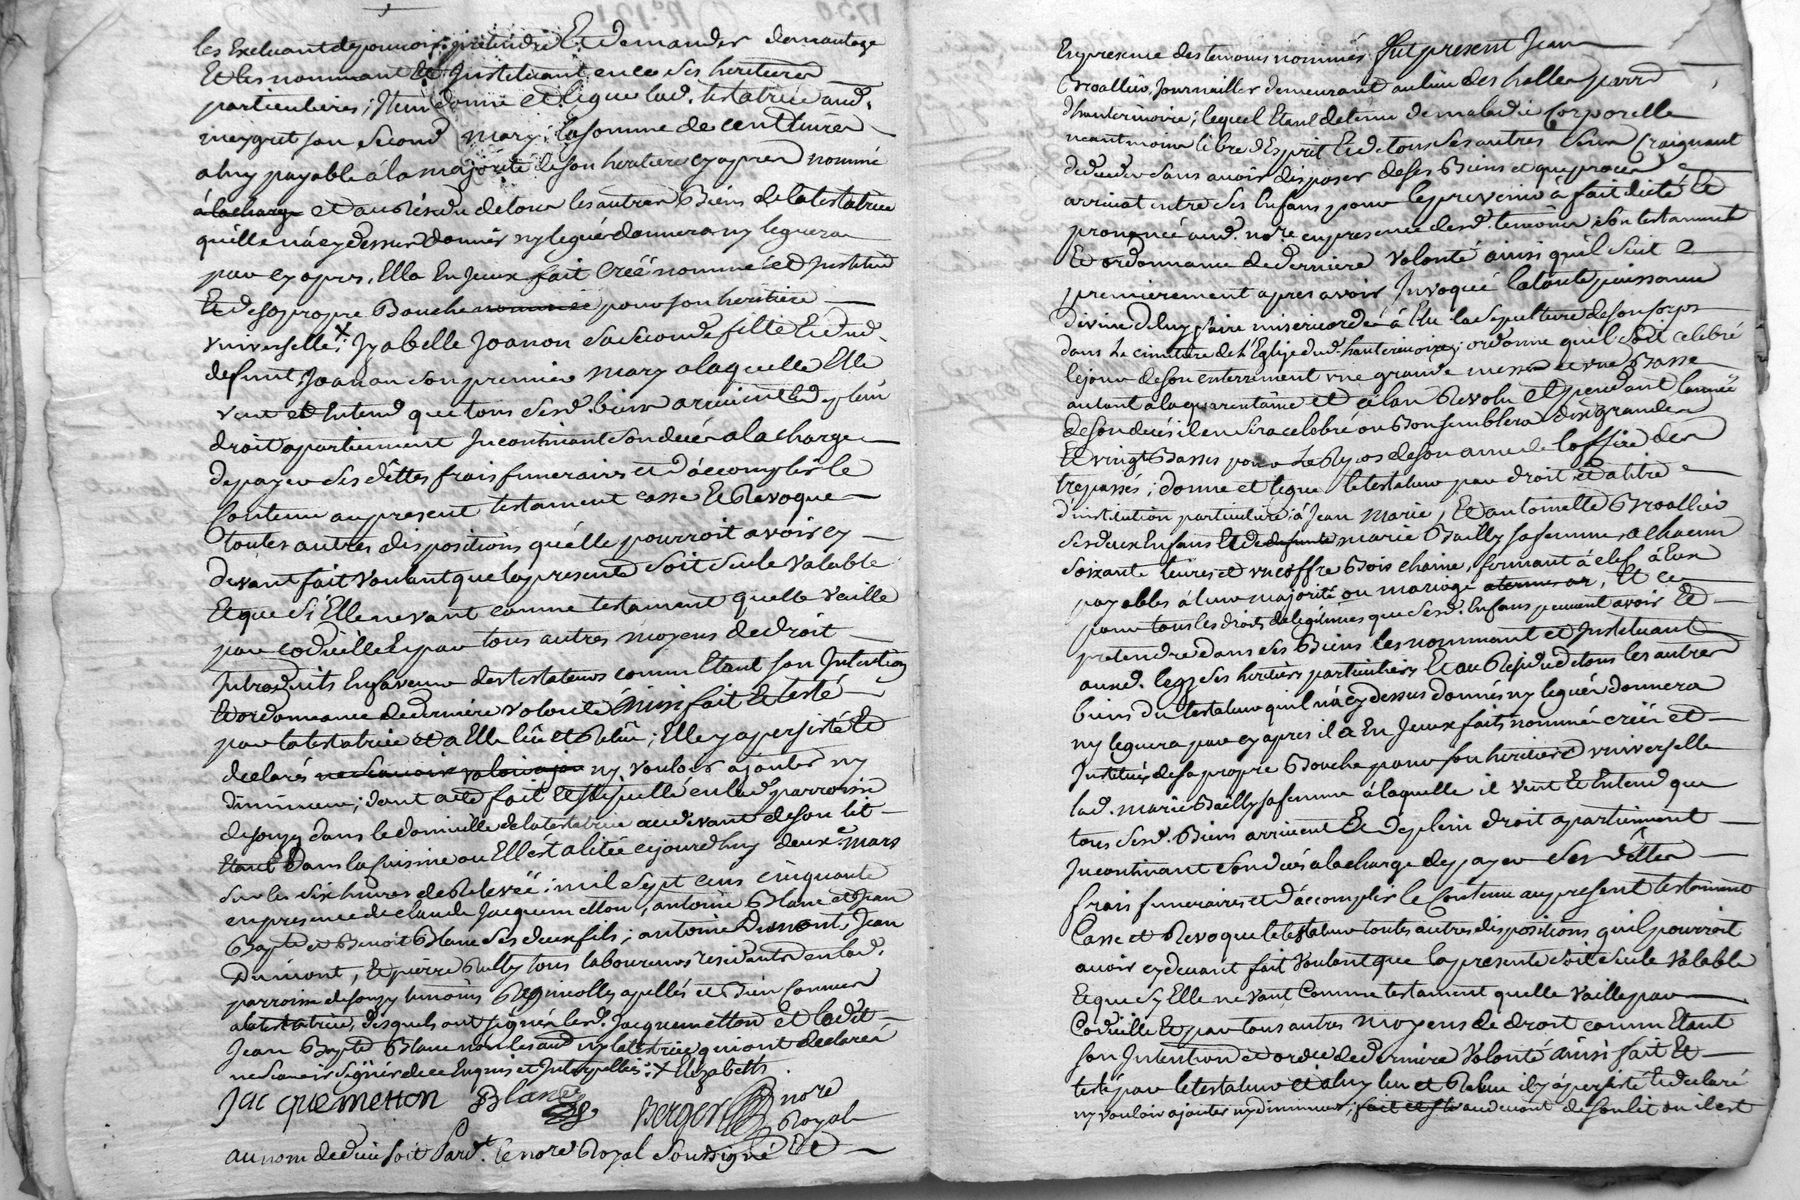 les Excluant de pouvoir pretendre Et demander davantage
Et les nommant Et Instituant en ce ses heritiers
particuliers ; Item donne et legue lad. testatrice aud.
meygret son second mary, la somme de cent livres
a luy payable à la majorité de son heritiere cy apres nommée
à la charge et au Résidu de tous les autres Biens de la testatrice
quelle n'à cy dessus donnés ny legués donnera ny leguera
par cy apres, Elle En Jceux fait créé nommé et Institué
Et de sa propre Bouche nommée pour son heritiere
vniverselle x Izabelle Joanon sa seconde fille Et dud.
defunt Joanon son premier mary a laquelle Elle
veut et Entend que tous sesd. biens arrivent Et de plein
droit apartiennent Incontinant son decés a la charge
de payer ses dêttes frais funeraires et d'àccomplir le
Contenu au present testament casse Et Revoque
toutes autres dispositions qu'élle pourroit avoir cy
devant fait Voulant que la presente soit seule valable
Et que si Elle ne vaut comme testament quelle vaille
par codicille Et par tous autres moyens de droit
Introduits En faveur des testateurs comm Etant son Intention
Et ordonnance de derniere volonté Ainsi fait Et testé
par la testatrice et a Elle lû et Relû ; Elle y a persisté Et
declaré ne scavoir vouloir ajou ny vouloir ajouter ny
diminuer ; dont acte fait et stipullé en lad. parroisse
de souzy dans le domicille de la testatrice au devant de son lit
Etant Dans la cuisine ou Ell'ést alitée cejourdhuy deux mars
sur les six heures de Relevée ; mil sept cens cinquante
en presence de claude Jacquemetton, antoine Blanc et Jean
Bapte et Benoit Blanc ses deux fils ; antoine Dumont, Jean
Dumont, Et pierre Rully tous laboureurs residants en lad.
parroisse de souzy temoins Reginicolles apellés et Bien connus
a la testatrice, desquels ont signé lesd. Jacquemetton et ledit
Jean Bapte Blanc non les aud. ny la testrice qui ont declaré
ne scavoir signer de ce Enquis et Interpellés : x Elizabeth
Jacquemetton Blanc Berger nore
Royal
au nom de dieu soit Pard.t le nore Royal soussigné Et
En presence des temoins nommés fut present Jean
Broallier Journallier demeurant au lieu des halles parr.
d'hauterivoire ; lequel Etant detenu de maladie Corporelle
neantmoins libre d'Esprit Et de tous ses autres sens Craignant
de deceder sans avoir disposer de ses Biens et que proces
arrivat entre ses Enfans pour le prevenir à fait dicté Et
prononcé aud. nore en presence desd. temoins son testament
Et ordonnance de derniere Volonté ainsi qu'il suit
premierement apres avoir Invoqué la toute puissance
divine de luy faire misericorde à Elu la sepulture de son corps
dans le cimetiere de l'Eglise dud. hauterivoire ; ordonne qu'il soit celebré
le jour de son enterrement vne grande messe et vne Basse
autant a la quarentaine et à l'an Revolu Et pendant l'année
de son deces il en sera celebré ou Bon semblera dix grandes
Et vingt Basses pour Le Repos de son ame de l'office des
trepassés ; donne et legue le testateur par droit et a titre
d'institution particuliere, à Jean Marie, Et antoinette Broallier
ses deux Enfans Et de defunte marie Bailly sa femme, a chacun
soixante livres et vn coffre Bois chaine, fermant à clef à Eux
payables à leur majorité ou mariage a termes ar, Et ce
pour tous les droits de legitimes que sesd. Enfans peuvent avoir Et
pretendre dans ses Biens les nommant et Instituant
auxd. legs ses heritiers particuliers Et au Residu de tous les autres
biens du testateur quil n'à cy dessus donnés ny legués donnera
ny leguera par cy apres il a En Jceux fait nommé créé et
Institué de sa propre Bouche pour son heritiere vniverselle
lad. marie Bailly sa femme à laquelle il veut Et Entend que
tous sesd. Biens arrivent Et de plein droit apartiennent
Incontinant son decés a la charge de payer ses dêttes
frais funeraires et d'accomplir le Contenu au present testament
Casse et Revoque le testateur toutes autres dispositions qu'il pourroit
avoir cy devant fait Voulant que la presente soit seule valable
Et que sy Elle ne vaut Comme testament quelle vaille par
Codicille Et par tous autres moyens de droit comm Etant
son Intention et ordce de derniere Volonté ainsi fait Et
testé par le testateur et a luy leu et Releu il y à persisté Et declaré
ny vouloir ajouter ny diminuer ; fait et sti au devant de son lit ou il est